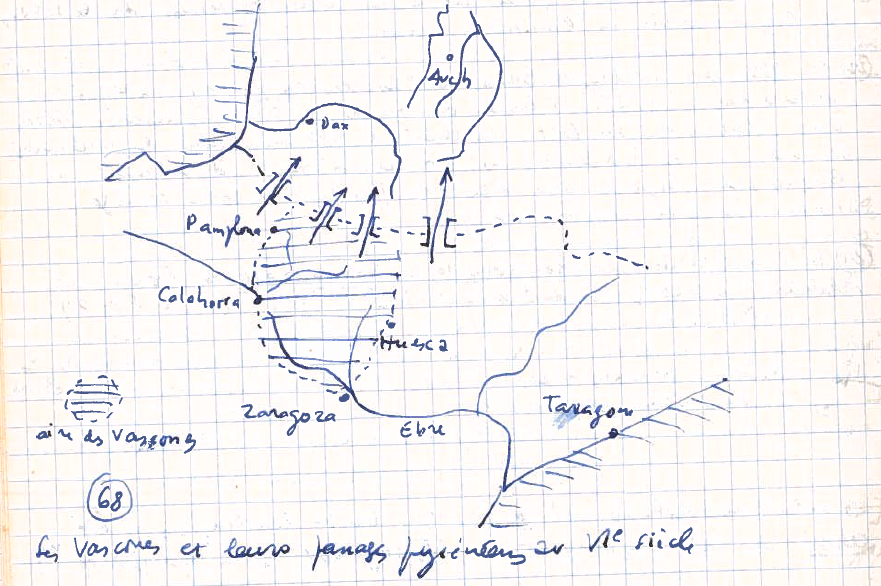 Auch
Dax
Pamplona
Calahorra
Huesca
Zaragoza
Ebre
Tarragone
aire des Vascons
68
Les Vascons et leurs passages pyrénéens au VIe siècle